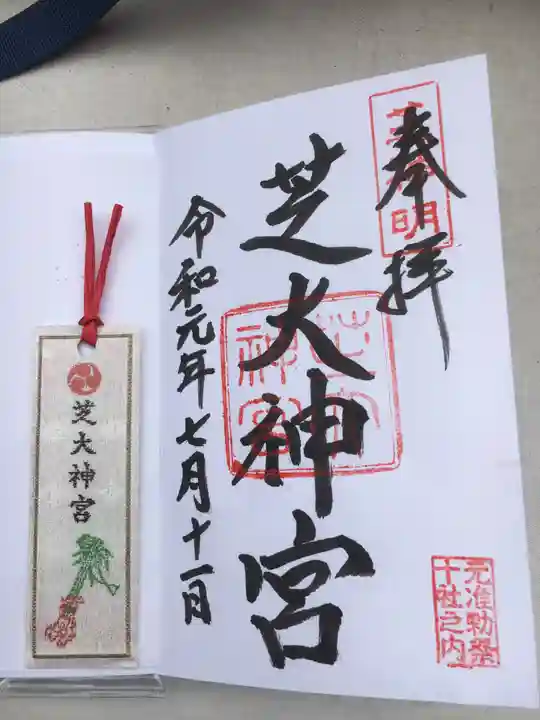 奉拝
芝大神宮
令和元年七月十一日
芝大神宮
元准勅祭
十社之内